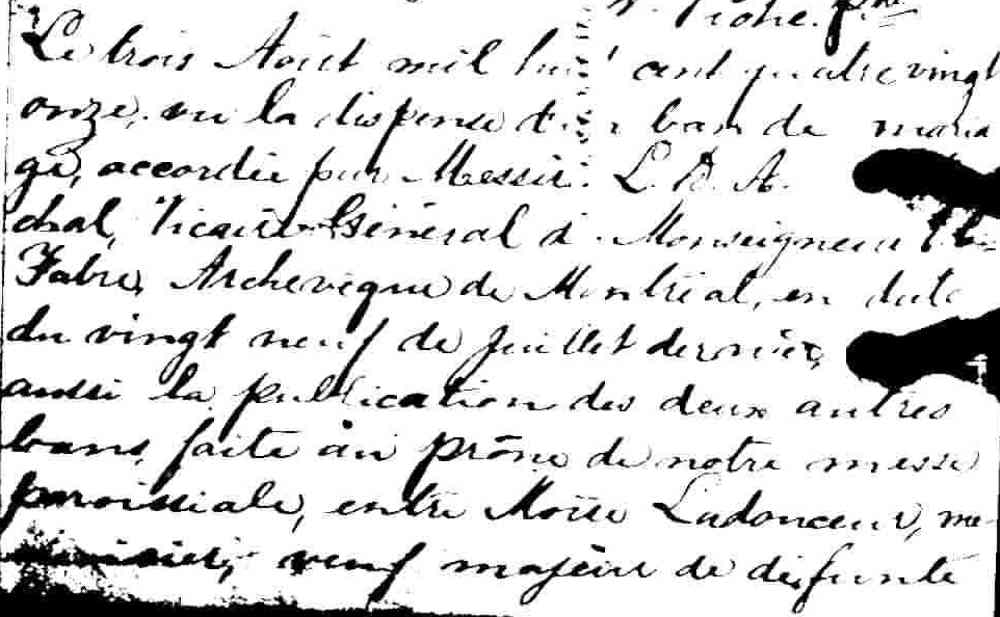 Piché. ptre
Le trois Août mil huit cent quatre vingt
onze, vu la dispense d'un ban de maria
ge, accordée par Messire L. D. A.
chal, Vicaire Général de Monseigneur
Fabre, Archevêque de Montréal, en date
du vingt neuf de Juillet dernier,
aussi la publication des deux autres
bans, faite au prône de notre messe
paroissiale, entre Moïse Ladouceur, me-
nuisier, veuf majeur de défunte